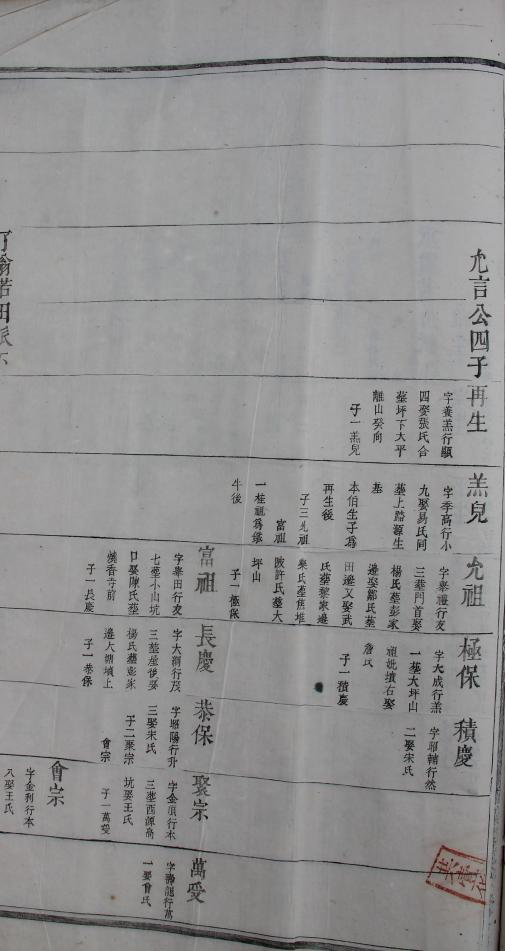 允言公四子再生
字養羔行顯
四娶張氏合
塟坪下大平
離山癸向
子一羔兒
羔兒
字季高行小
九娶易氏同
塟上路源生
基
本伯生子爲
再生後
子三允祖
富祖
一桂祖爲鐵
牛後
允祖
字舉禮行友
三塟門首娶
楊氏塟彭家
邊娶鄒氏塟
田邊又娶武
氏塟黎家邊
樂氏塟焦堆
陂許氏塟大
坪山
子一極保
富祖
字舉田行友
七塟小山坑
口娶陳氏塟
燒香寺前
子一長慶
極保
字大成行羔
一塟大坪山
祖妣墳右娶
詹氏
子一積慶
長慶
字大淵行茂
三塟屋後娶
楊氏塟彭家
邊大湖墳上
子一恭保
積慶
字昭輔行然
二娶宋氏
恭保
字昭陽行升
三娶宋氏
子二聚宗
會宗
聚宗
字金須行本
三塟西源高
坑娶王氏
子一萬受
會宗
字金利行本
八娶王氏
萬受
字壽龍行富
一娶會氏